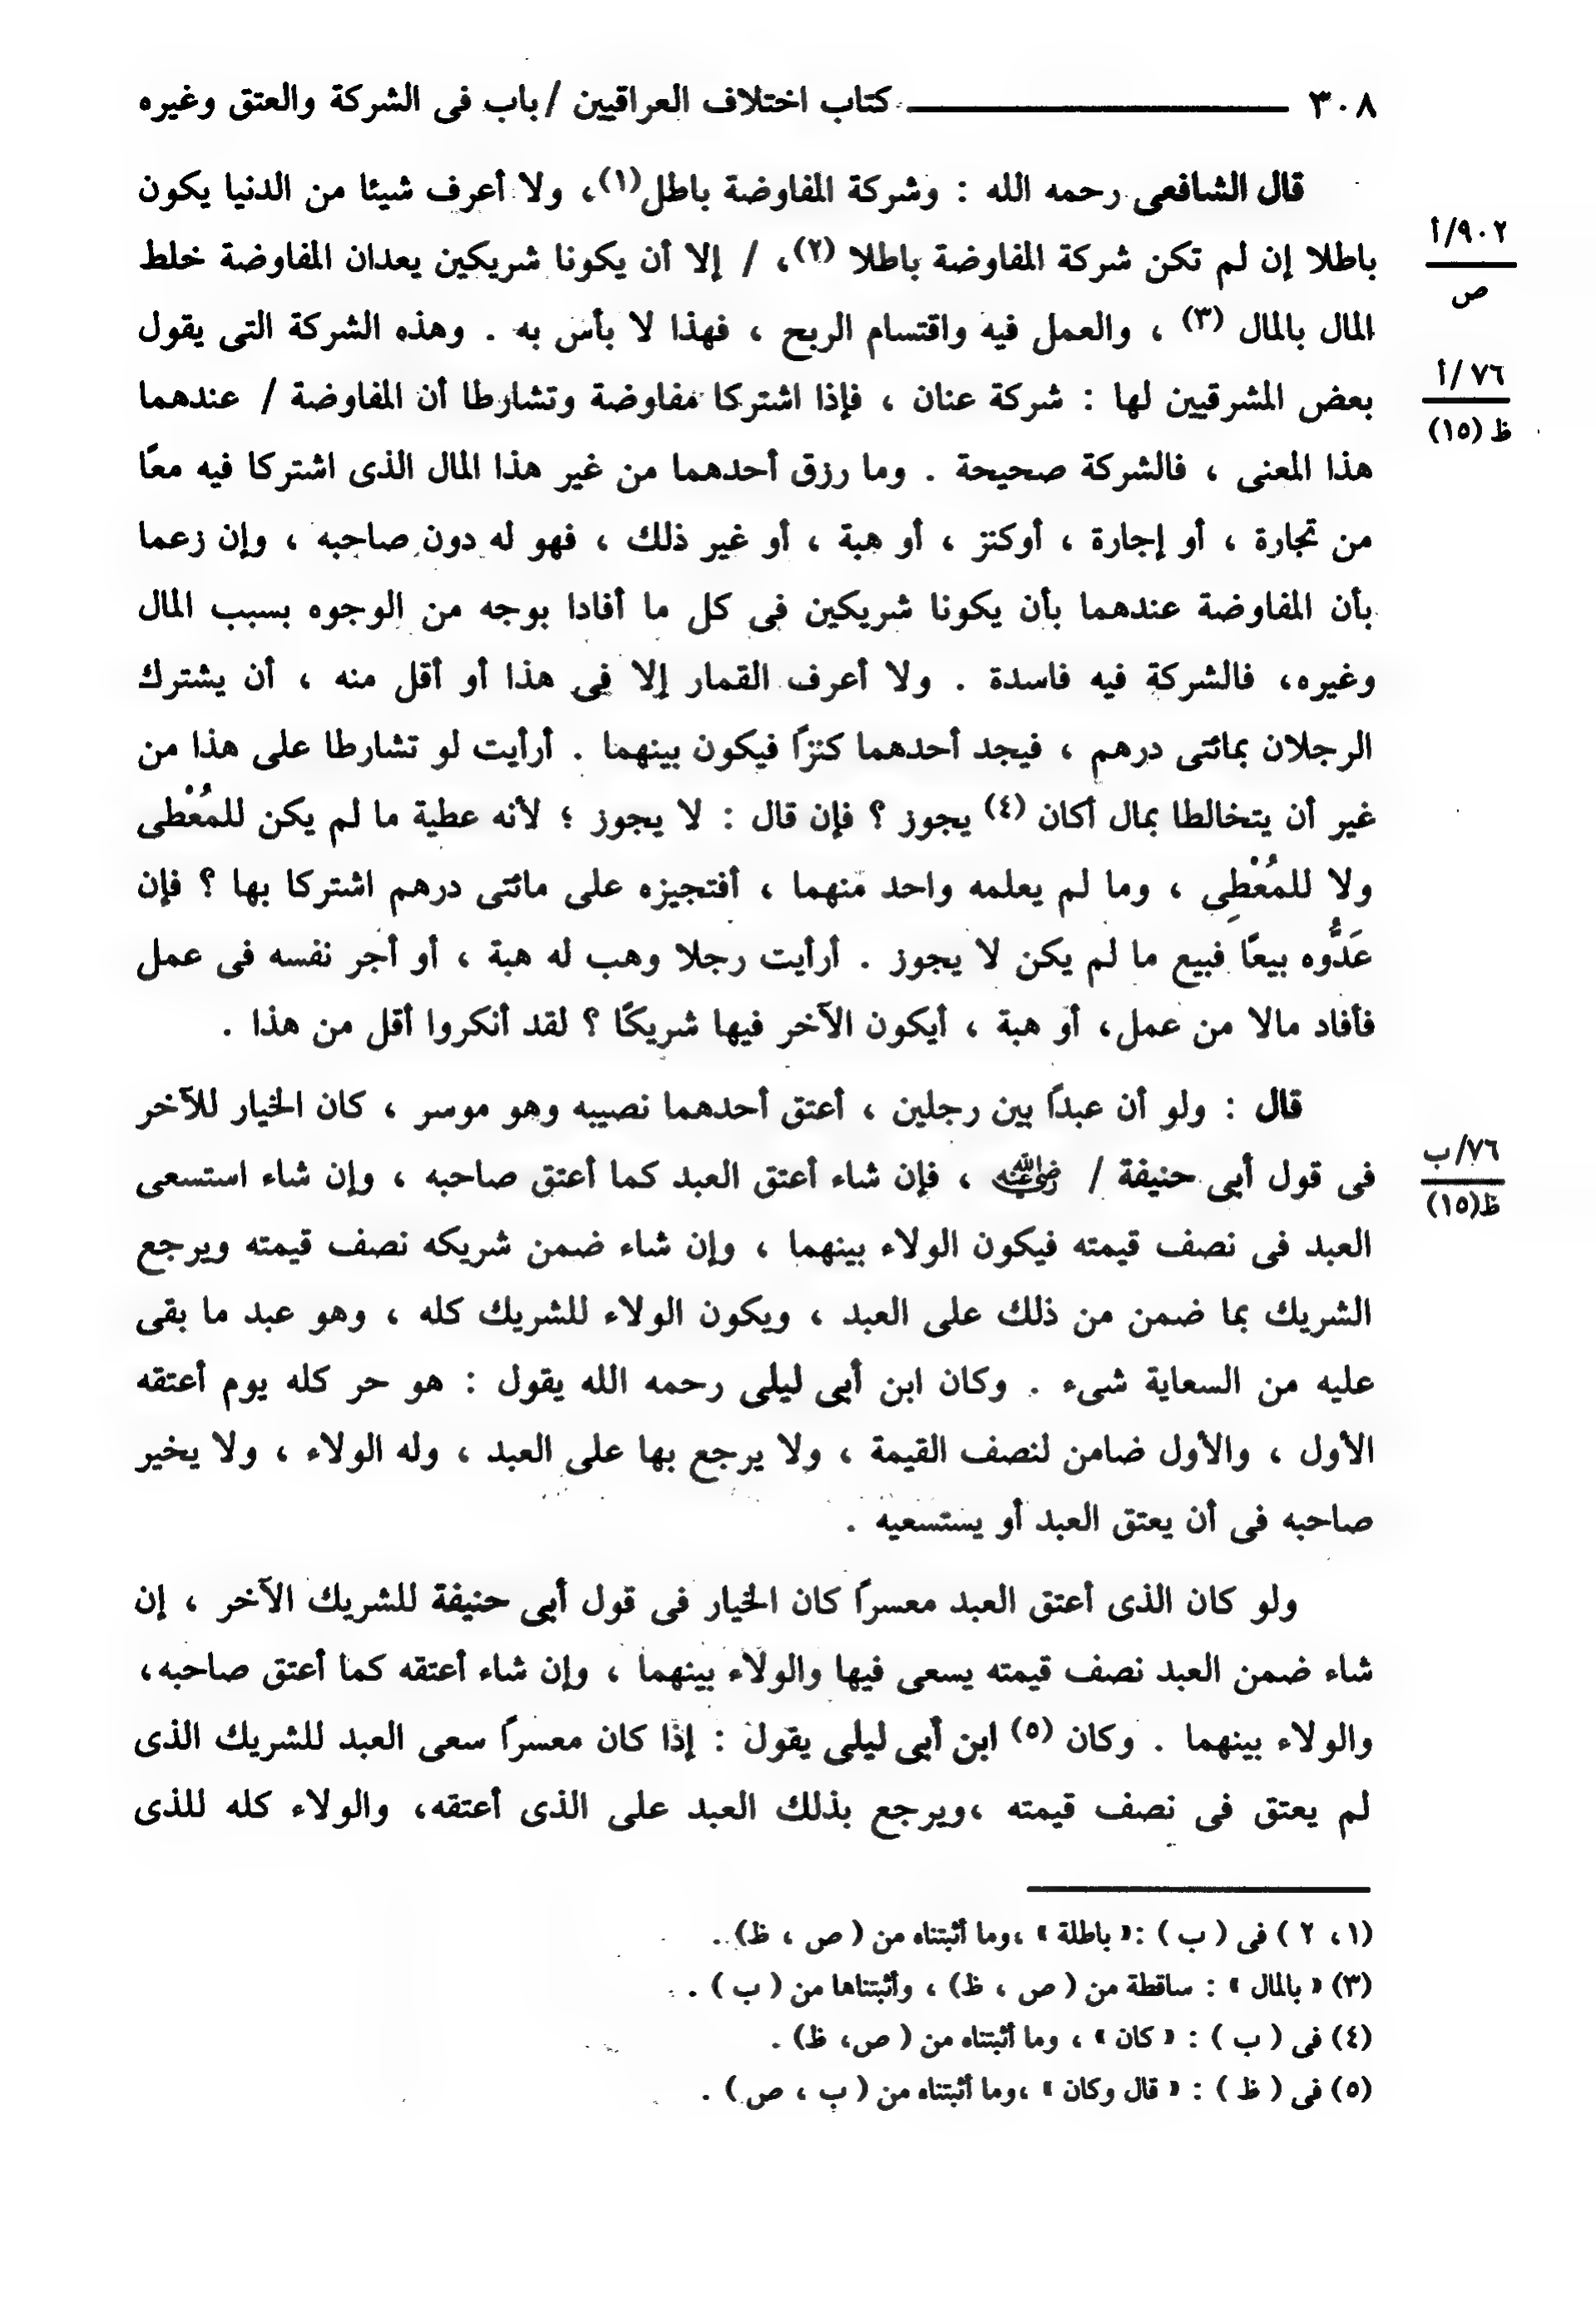 ٣٠٨ ــــــــــــــــ كتاب اختلاف العراقيين / باب فى الشركة والعتق وغيره
قال الشافعى رحمه الله : وشركة المفاوضة باطل(١)، ولا أعرف شيئا من الدنيا يكون
٩٠٢/أ
ص
باطلا إن لم تكن شركة المفاوضة باطلا (٢)، / إلا أن يكونا شريكين يعدان المفاوضة خلط
المال بالمال (٣) ، والعمل فيه واقتسام الربح ، فهذا لا بأس به . وهذه الشركة التى يقول
٧٦/أ
ظ (١٥)
بعض المشرقيين لها : شركة عنان ، فإذا اشتركا مفاوضة وتشارطا أن المفاوضة / عندهما
هذا المعنى ، فالشركة صحيحة . وما رزق أحدهما من غير هذا المال الذى اشتركا فيه معًا
من تجارة ، أو إجارة ، أوكنز ، أو هبة ، أو غير ذلك ، فهو له دون صاحبه ، وإن زعما
بأن المفاوضة عندهما بأن يكونا شريكين فى كل ما أفادا بوجه من الوجوه بسبب المال
وغيره، فالشركة فيه فاسدة . ولا أعرف القمار إلا فى هذا أو أقل منه ، أن يشترك
الرجلان بمائتى درهم ، فيجد أحدهما كنزًا فيكون بينهما . أرأيت لو تشارطا على هذا من
غير أن يتخالطا بمال أكان (٤) يجوز ؟ فإن قال : لا يجوز ؛ لأنه عطية ما لم يكن للمُعْطى
ولا للمُعْطِى ، وما لم يعلمه واحد منهما ، أفتجيزه على مائتى درهم اشتركا بها ؟ فإن
عَدُّوه بيعًا فبيع ما لم يكن لا يجوز . أرأيت رجلا وهب له هبة ، أو أجر نفسه فى عمل
فأفاد مالا من عمل، أو هبة ، أيكون الآخر فيها شريكًا ؟ لقد أنكروا أقل من هذا .
قال : ولو أن عبدًا بين رجلين ، أعتق أحدهما نصيبه وهو موسر ، كان الخيار للآخر
٧٦/ب
ظ(١٥)
فى قول أبى حنيفة / رضي الله عنه ، فإن شاء أعتق العبد كما أعتق صاحبه ، وإن شاء استسعى
العبد فى نصف قيمته فيكون الولاء بينهما ، وإن شاء ضمن شريكه نصف قيمته ويرجع
الشريك بما ضمن من ذلك على العبد ، ويكون الولاء للشريك كله ، وهو عبد ما بقى
عليه من السعاية شىء . وكان ابن أبى ليلى رحمه الله يقول : هو حر كله يوم أعتقه
الأول ، والأول ضامن لنصف القيمة ، ولا يرجع بها على العبد ، وله الولاء ، ولا يخير
صاحبه فى أن يعتق العبد أو يستسعيه .
ولو كان الذى أعتق العبد معسرًا كان الخيار فى قول أبى حنيفة للشريك الآخر ، إن
شاء ضمن العبد نصف قيمته يسعى فيها والولاء بينهما ، وإن شاء أعتقه كما أعتق صاحبه،
والولاء بينهما . وكان (٥) ابن أبى ليلى يقول : إذا كان معسرًا سعى العبد للشريك الذى
لم يعتق فى نصف قيمته ،ويرجع بذلك العبد على الذى أعتقه، والولاء كله للذى
(١، ٢ ) فى ( ب ) :« باطلة » ،وما أثبتناه من ( ص ، ظ) .
(٣) « بالمال » : ساقطة من ( ص ، ظ) ، وأثبتناها من ( ب ) .
(٤) فى ( ب ) : « كان » ، وما أثبتناه من ( ص، ظ) .
(٥) فى ( ظ ) : « قال وكان » ،وما أثبتناه من ( ب ، ص ) .